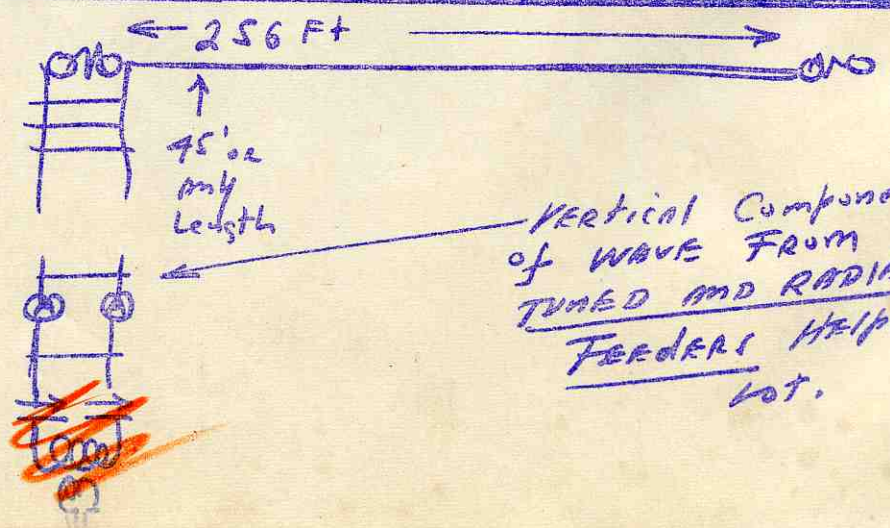 256 Ft
45' or
any
Length
VERticAl Compon
of WAVE FROM
TUNED AND RADIA
FEEdERS HElp
Lot.
A
A